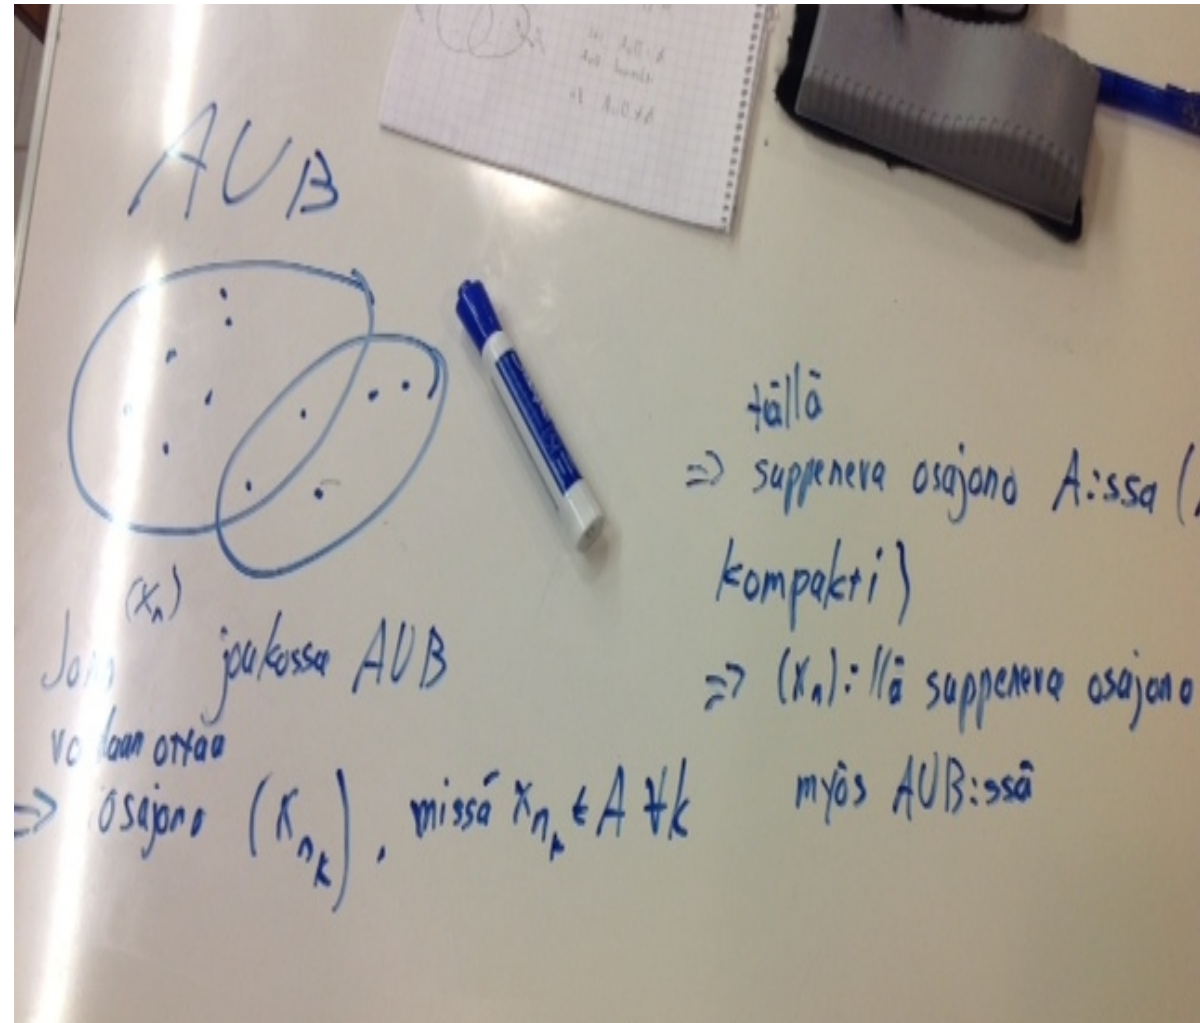 A∪B
(xₙ)
Jono joukossa A∪B
voidaan ottaa
=> osajono (xₙₖ), missä xₙₖ ∈ A ∀k
tällä
=> suppeneva osajono A:ssa (
kompakti)
=> (xₙ):llä suppeneva osajono
myös A∪B:ssä